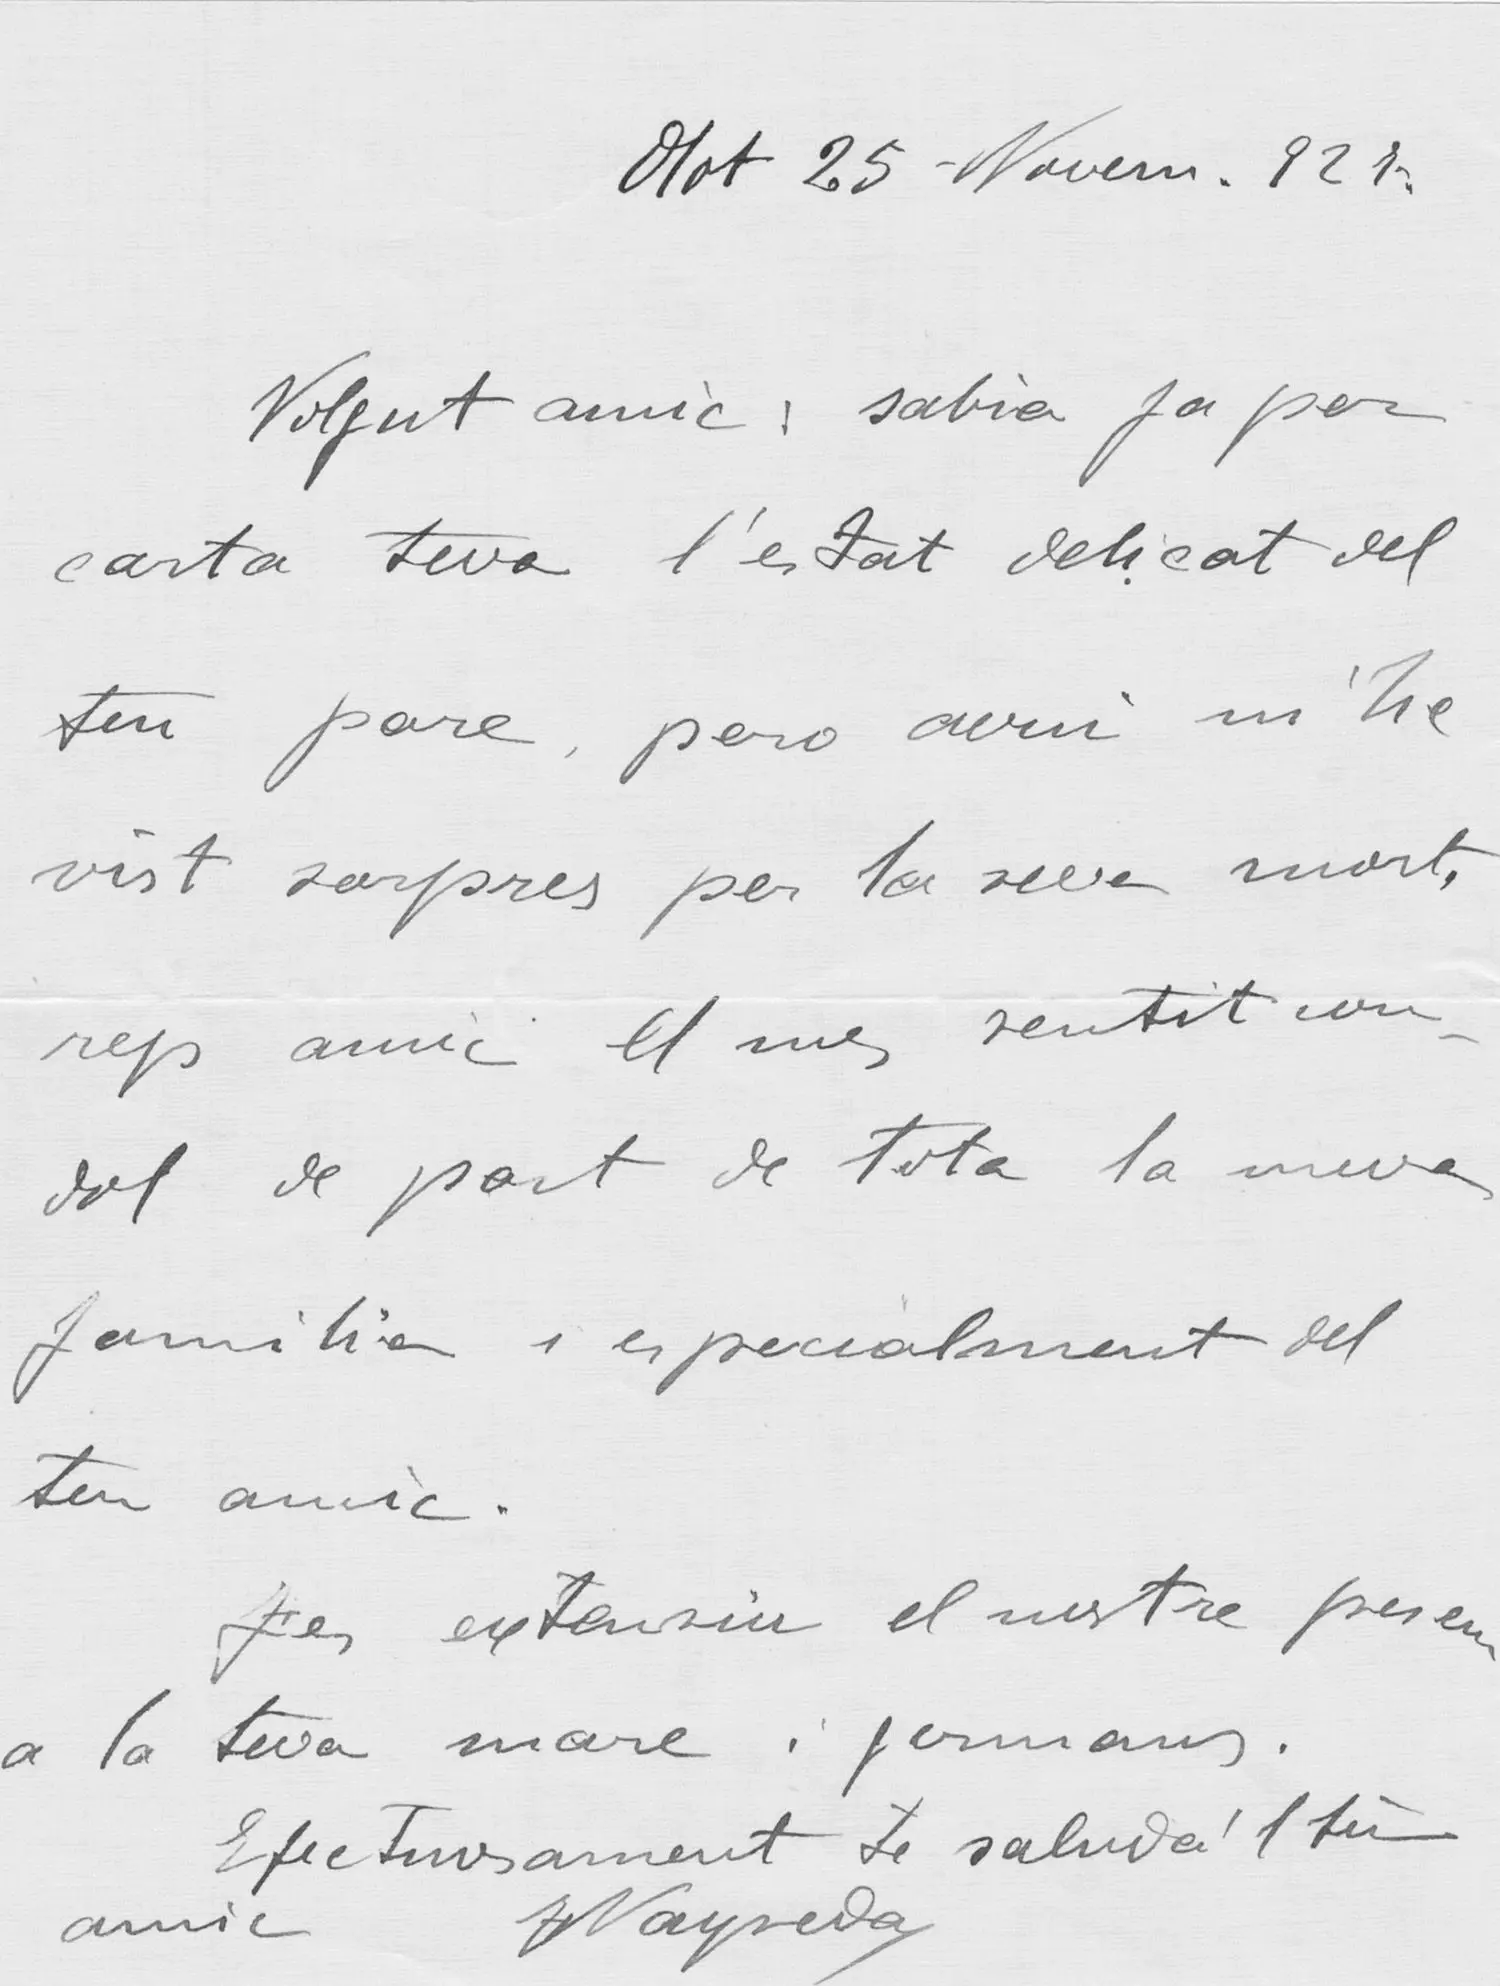 Olot 25 - Novem. 921.
Volgut amic: sabia ja per
carta teva l'estat delicat del
teu pare, pero avui m'he
vist sorpres per la seva mort,
rep amic el mes sentit con-
dol de part de tota la meva
familia i especialment del
teu amic.
Fes extensiu el nostre pesem
a la teva mare i germans.
Efectuosament te saluda'l teu
amic Vayreda